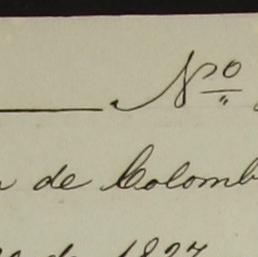 Nº
de Colomb
de 1827